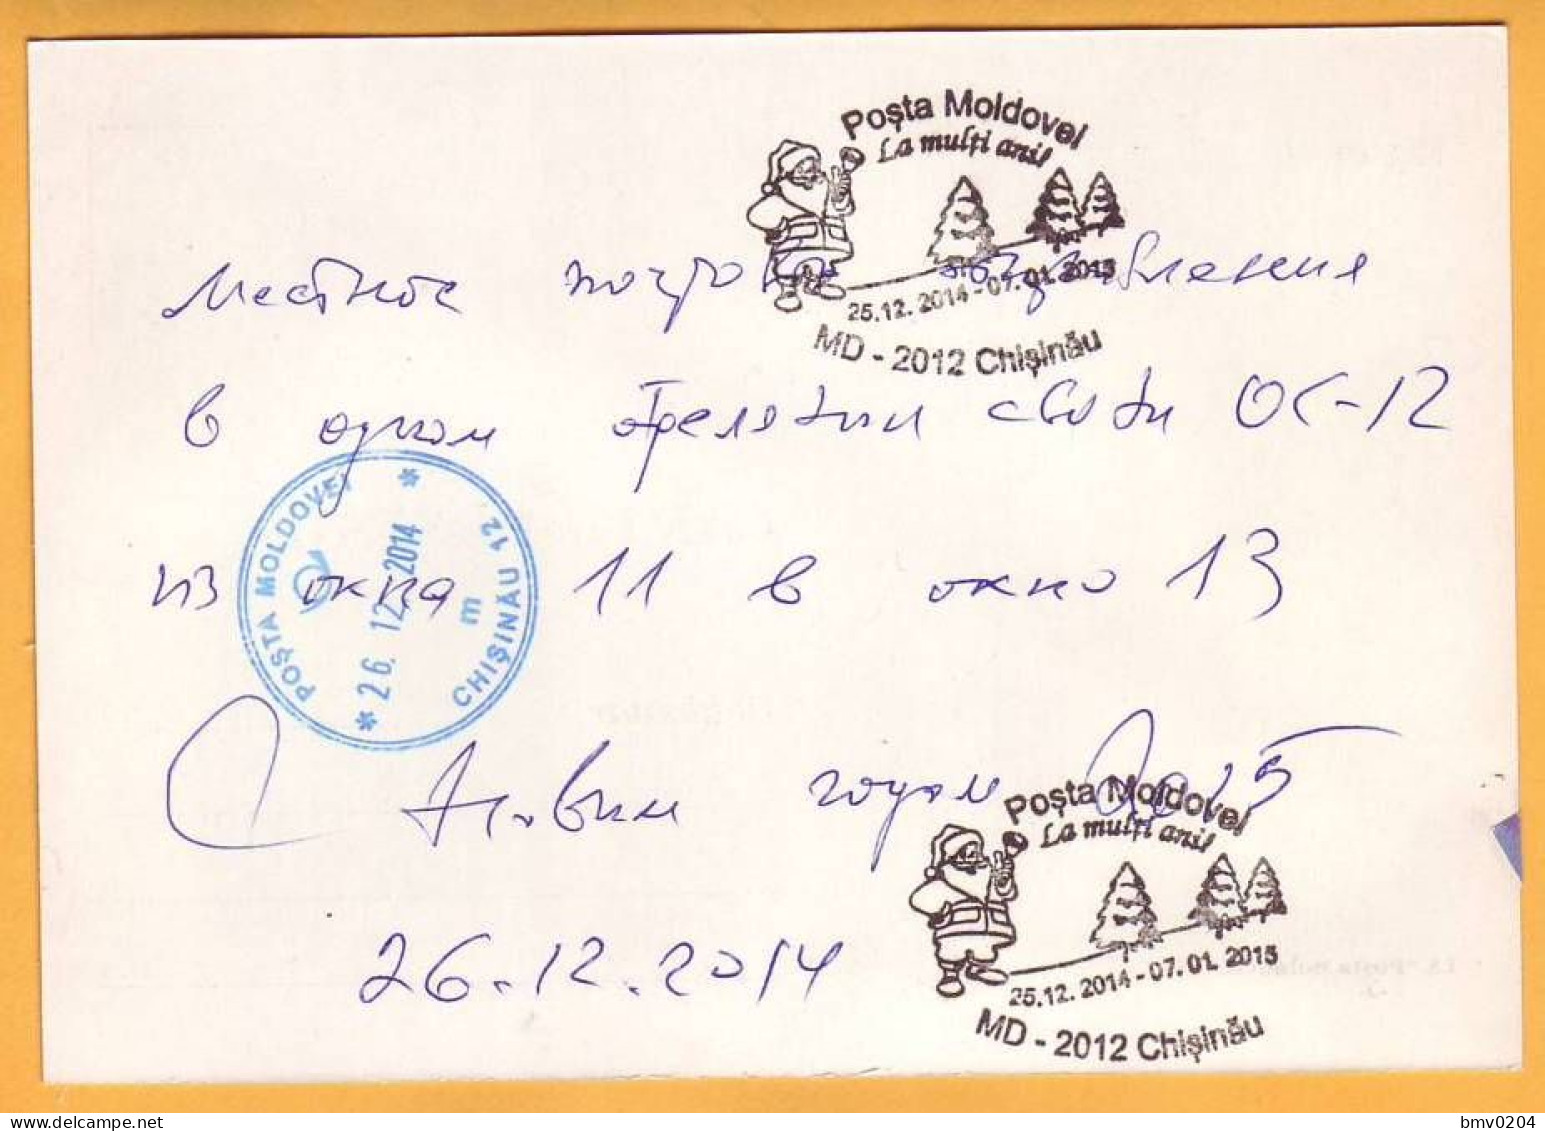 Poșta Moldovei
La mulți ani!
25.12.2014-07.01.2015
MD - 2012 Chișinău
Местное
в одном отделении связи ОС-12
из окна 11 в окно 13
С Новым годом 2015
26.12.2014
POȘTA MOLDOVEI
* 26.12.2014 *
m
CHIȘINĂU 12
Poșta Moldovei
La mulți ani!
25.12.2014-07.01.2015
MD - 2012 Chișinău
bmv0204